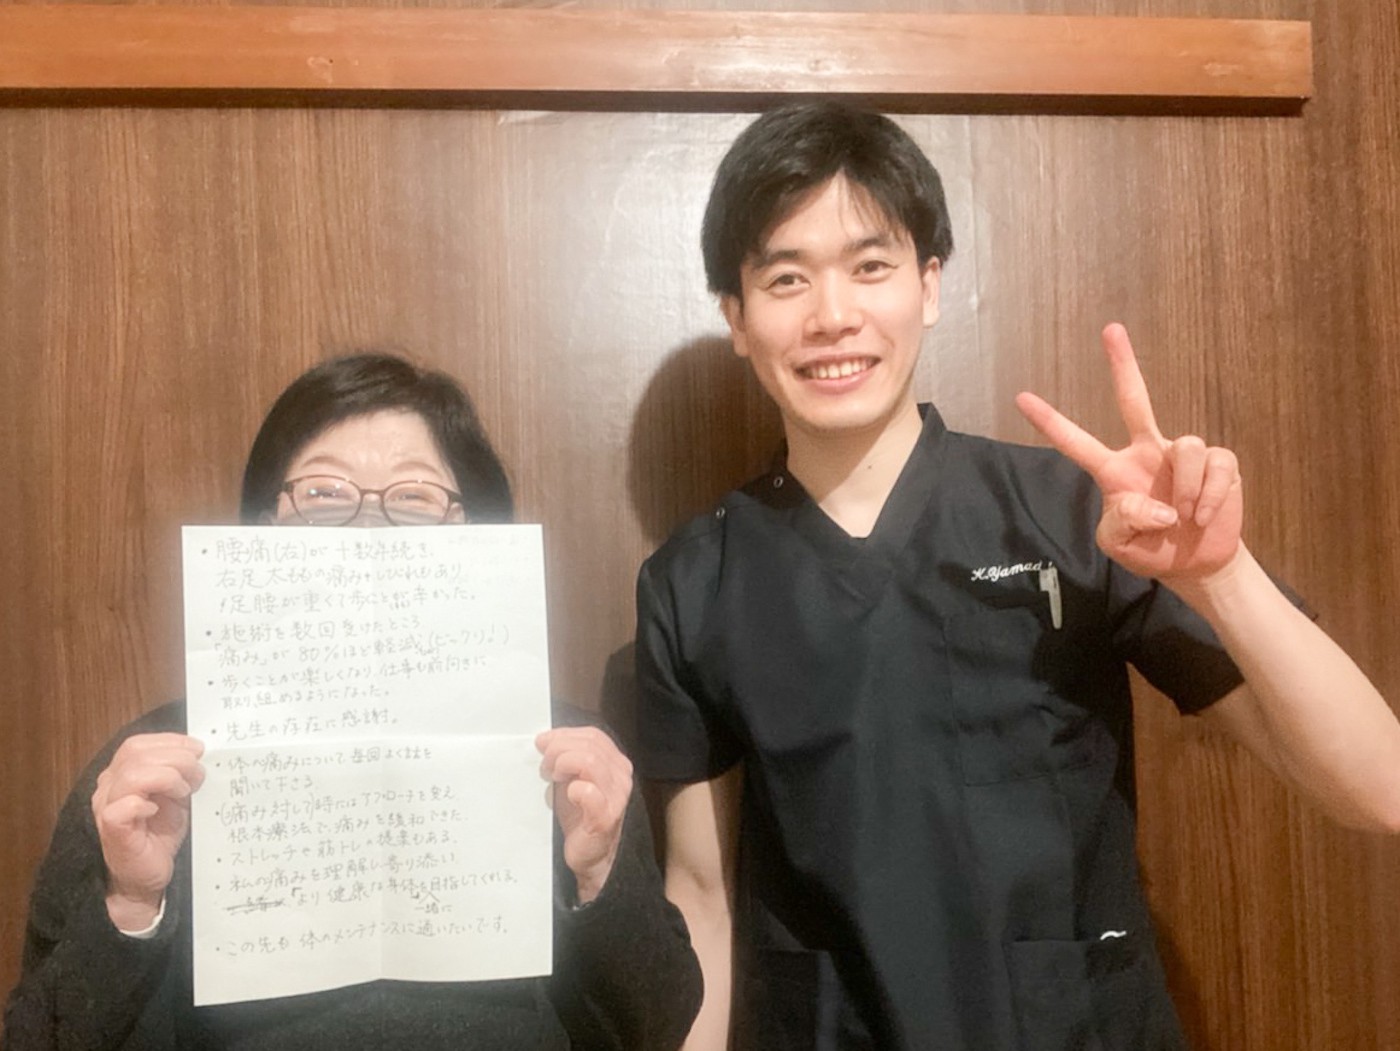 ・腰痛(右)が十数年続き、
右足太ももの痛み+しびれもあり
足腰が重くて歩くこと辛かった。
・施術を数回受けたところ
「痛み」が80%ほど軽減(ビックリ!)
・歩くことが楽しくなり、仕事も前向きに
取り組めるようになった。
・先生の存在に感謝。
・体の痛みについて毎回よく話を
聞いて下さる
・(痛み対して)時にはアプローチを変え
根本療法で、痛みを緩和できた。
・ストレッチや筋トレの提案もある。
・私の痛みを理解し、寄り添い
「より健康な身体を目指してくれる。
一緒に
・この先も体のメンテナンスに通いたいです。